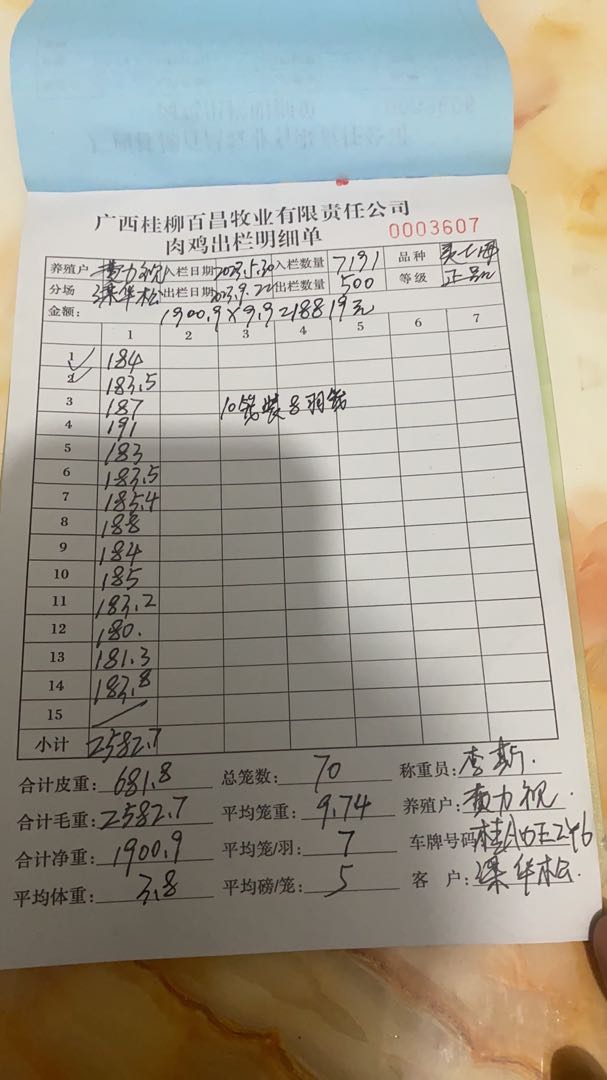 广西桂柳百昌牧业有限责任公司
肉鸡出栏明细单 0003607
养殖户 黄力祝 入栏日期 2023.5.30 入栏数量 7191 品种
分场 梁华松 出栏日期 2023.9.22 出栏数量 500 等级 正品
金额: 1900.9×9.9=18819元
1 2 3 4 5 6 7
1 184
2 183.5
3 187 10笼装8羽笼
4 191
5 183
6 183.5
7 185.4
8 188
9 184
10 185
11 183.2
12 180.
13 181.3
14 183.8
15
小计 2582.7
合计皮重: 681.8 总笼数: 70 称重员: 李斯.
合计毛重: 2582.7 平均笼重: 9.74 养殖户: 黄力祝.
合计净重: 1900.9 平均笼/羽: 7 车牌号码
平均体重: 3.8 平均磅/笼: 5 客户: 梁华松.